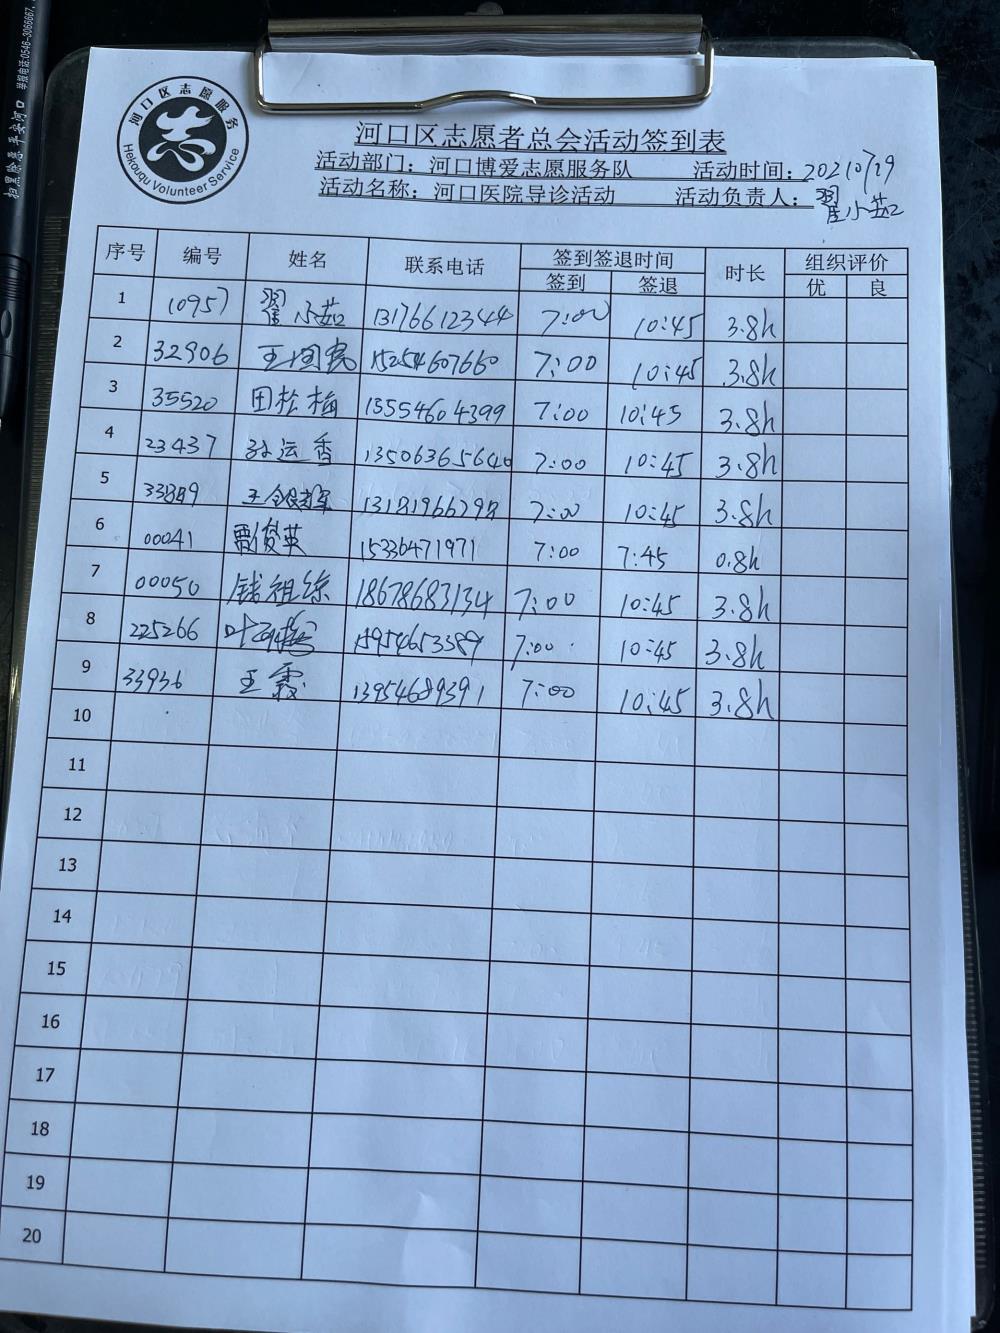 举报电话:0546-3066667,
扫黑除恶 平安河口
河口区志愿服务
Hekouqu Volunteer Service
河口区志愿者总会活动签到表
活动部门：河口博爱志愿服务队 活动时间：20210719
活动名称：河口医院导诊活动 活动负责人：翟小茹
序号 编号 姓名 联系电话 签到签退时间 时长 组织评价
签到 签退 优 良
1 10957 翟小茹 13176612344 7:00 10:45 3.8h
2 32906 王国亮 15254607660 7:00 10:45 3.8h
3 35520 田松梅 13554604399 7:00 10:45 3.8h
4 23437 孙运香 13506365640 7:00 10:45 3.8h
5 7:00 10:45 3.8h
6 00041 贾俊英 15336471971 7:00 7:45 0.8h
7 00050 钱祖练 18678683134 7:00 10:45 3.8h
8 225266 15954653389 7:00 10:45 3.8h
9 33936 王霞 13954689391 7:00 10:45 3.8h
10
11
12
13
14
15
16
17
18
19
20